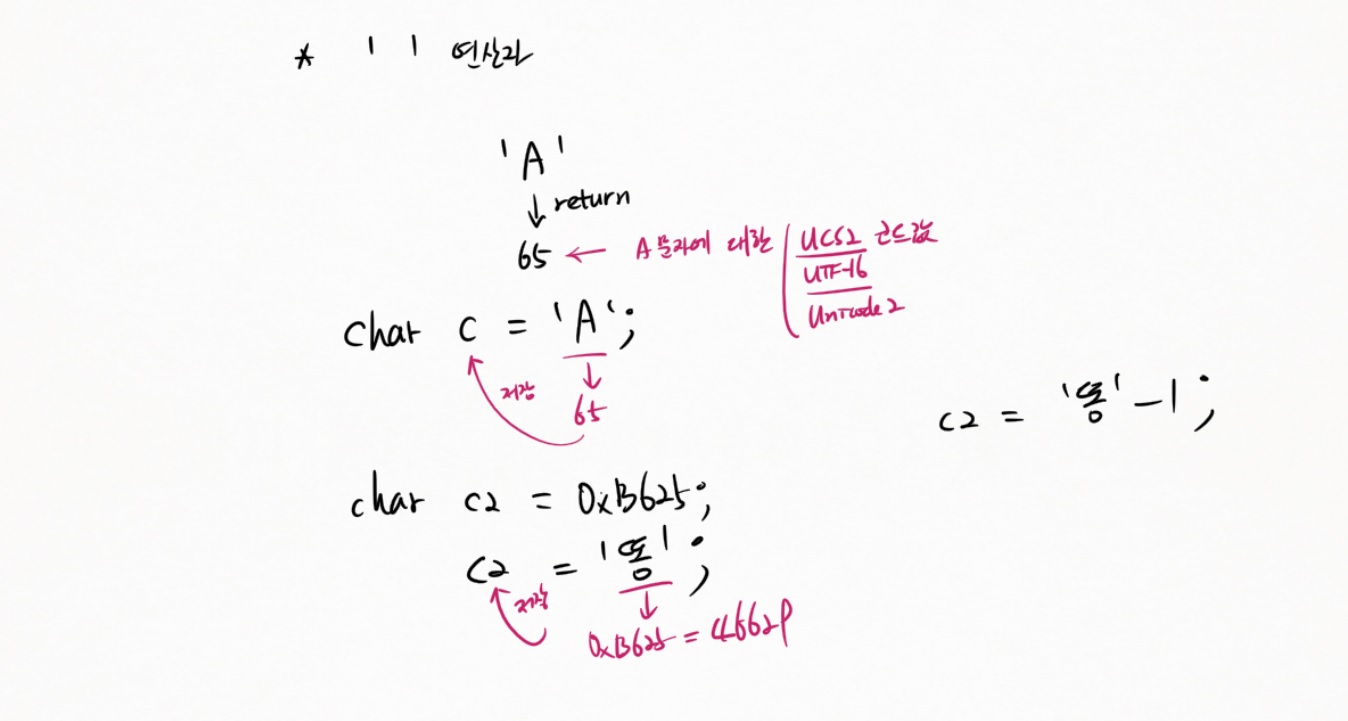 * ' ' 연산자
'A'
↓ return
65 ← A 문자에 대한 UCS2 코드값
UTF-16
Unicode 2
char c = 'A';
저장 ↓
65
c2 = '똥' - 1;
char c2 = 0xB625;
c2 = '똥';
저장 ↓
0xB625 = 46629